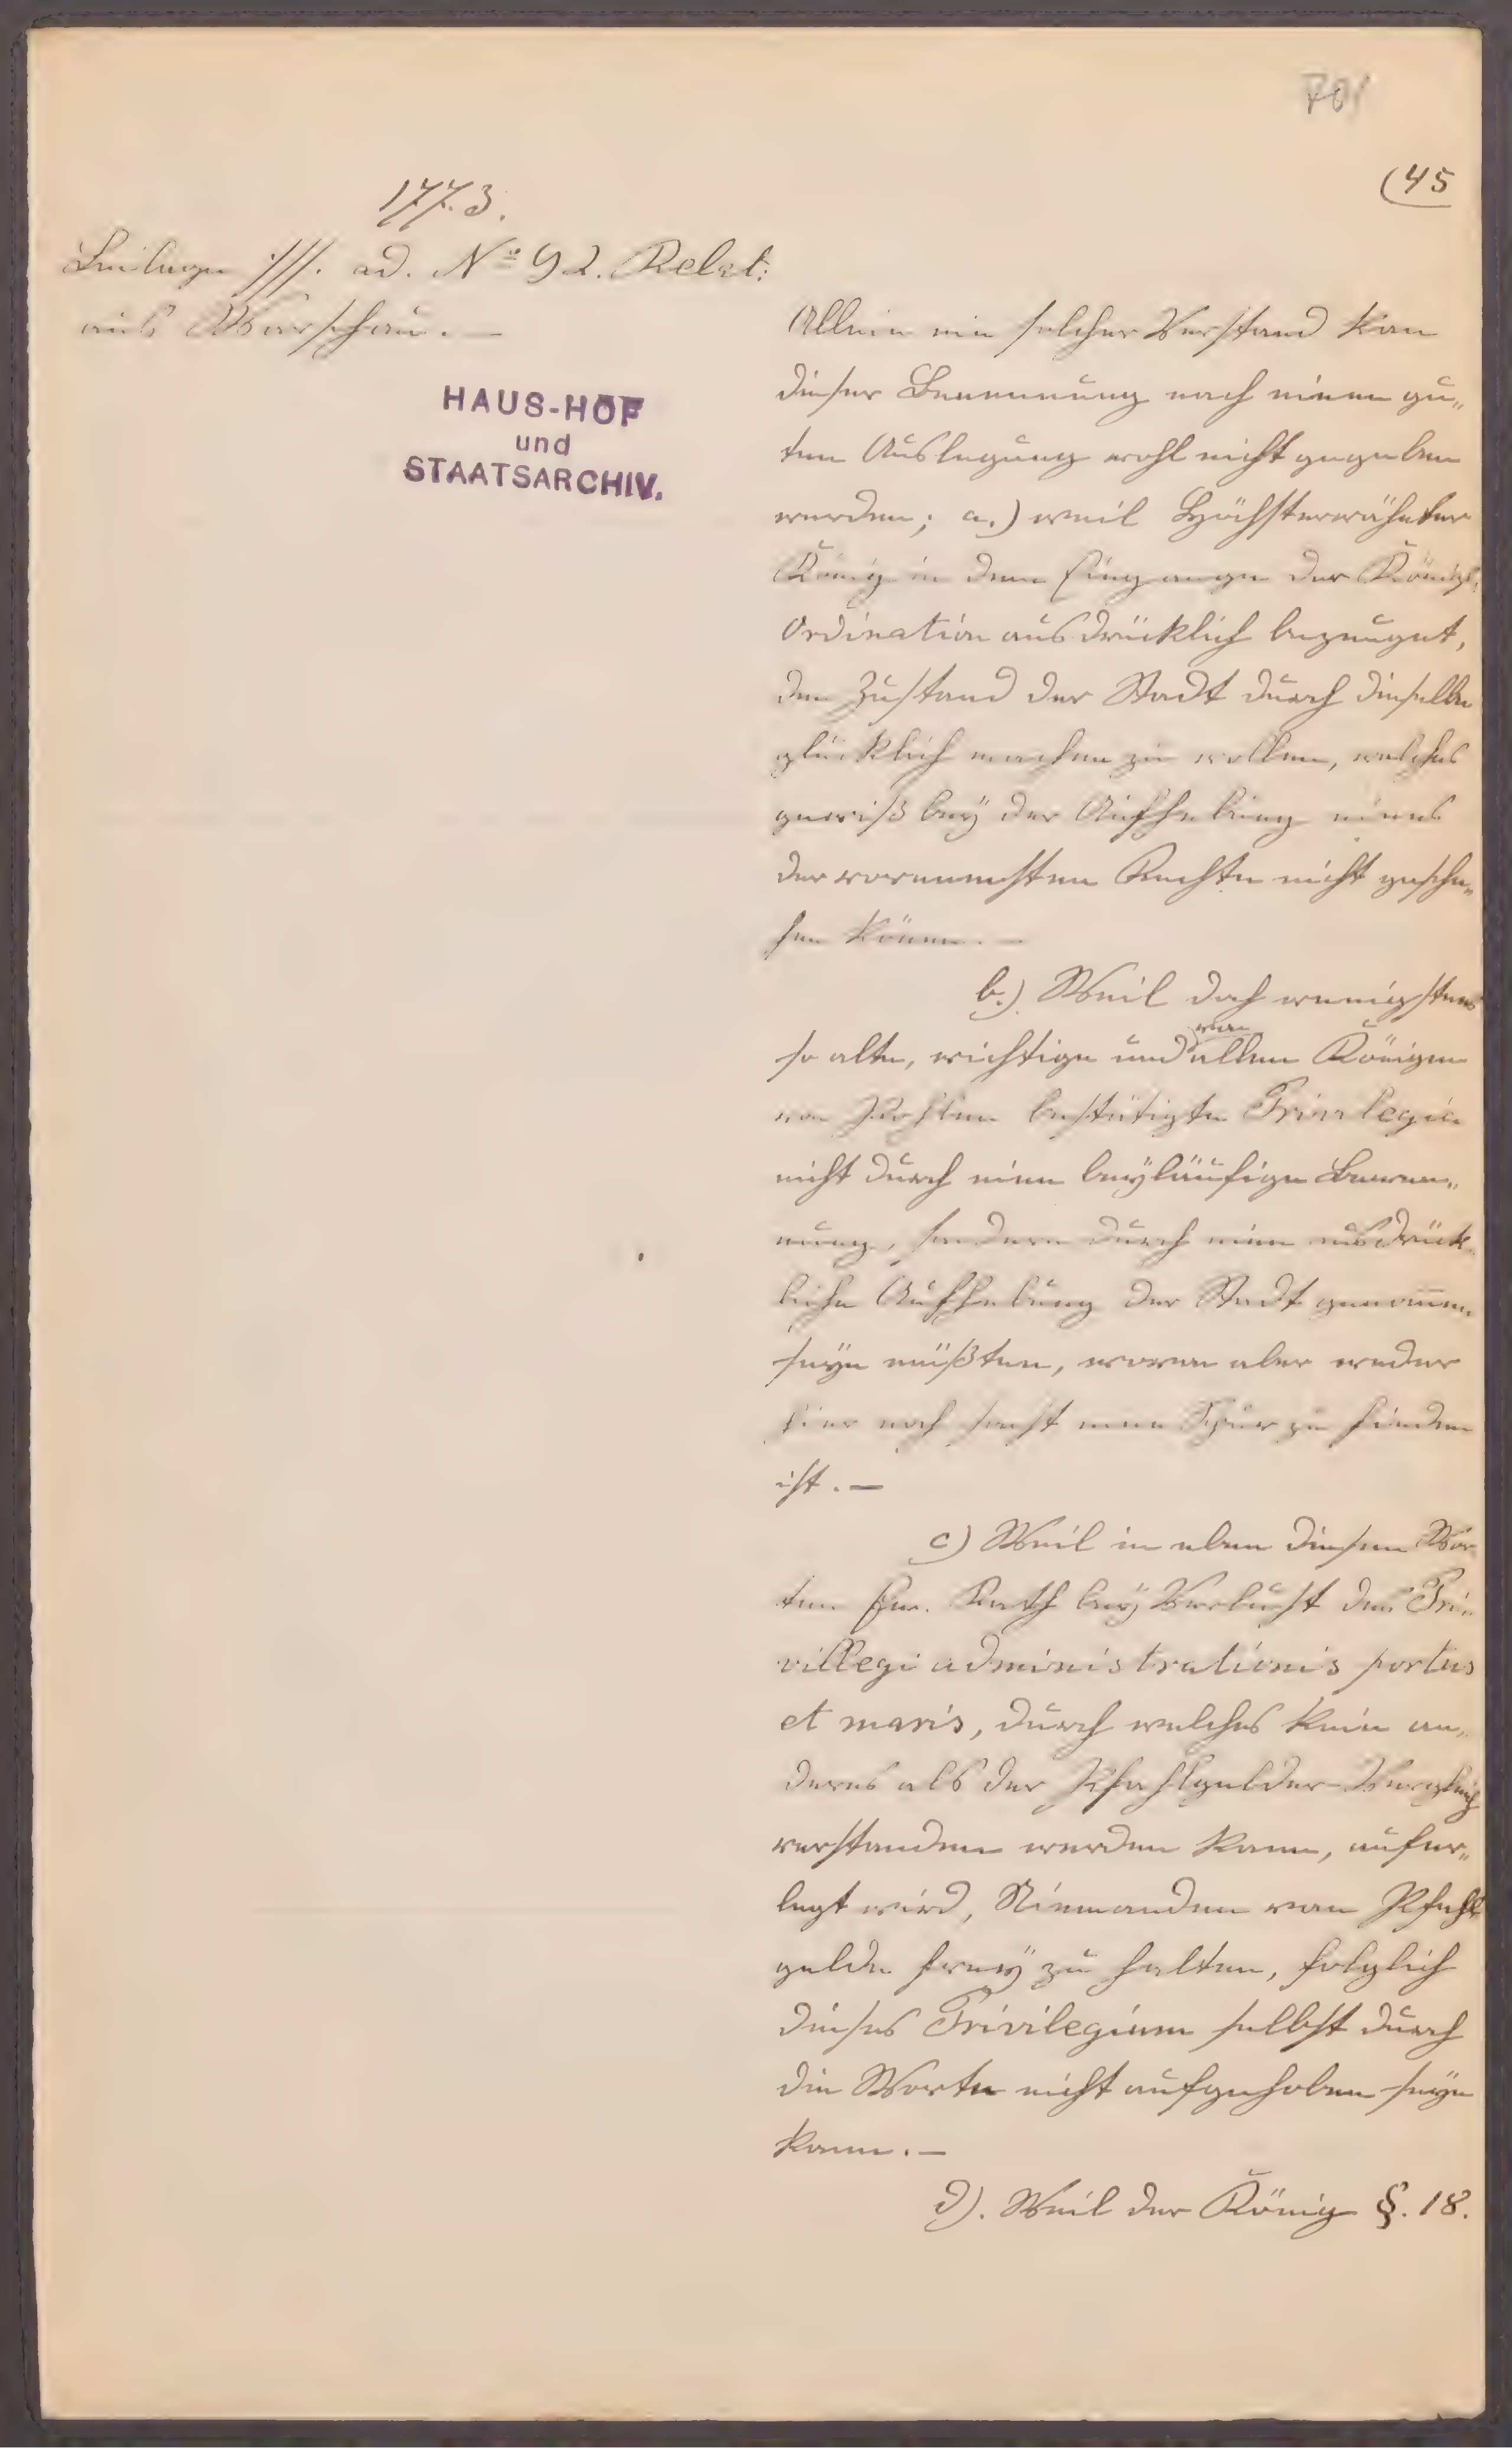 701
(45
1773.
Beilage ·///. ad. No 92. Relat:
aus Warschau. —
HAUS-HOF
und
STAATSARCHIV.
Allein ein solcher Verstand kan
dieser Benennung nach einen gu„
ten Auslegung wohl nicht gegeben
werden; a.) weil Höchsterwähnter
König in dem Eingange der Königl.
Ordination ausdrücklich bezeuget,
den Zustand der Stadt durch dieselbe
glücklich machen zu wollen, welches
gewiß beÿ der Aufhebung eines
der vornemsten Rechte nicht gesche„
hen könen. —
b.) Weil doch wenigstens
so alte, wichtige und von allen Königen
von Pohlen bestätigte Privilegia
nicht durch eine beÿläufige Benen„
nung, sondern durch eine ausdrück„
liche Aufhebung der Stadt genomen
seÿn müßten, wovon aber weder
hier noch sonst eine Spur zu finden
ist. —
c) Weil in eben diesen Wor
ten Em. Rath beÿ Verlust des Pri„
villegi administrationis portus
et maris, durch welches kein an„
deres als der Pfahlgelder-Vergleich
verstanden werden kann, aufer„
legt wird, Niemanden vom Pfahl
gelde freÿ zu halten, folglich
dieses Privilegium selbst durch
die Worte nicht aufgehoben seÿn
kann. —
d). Weil der König §. 18.